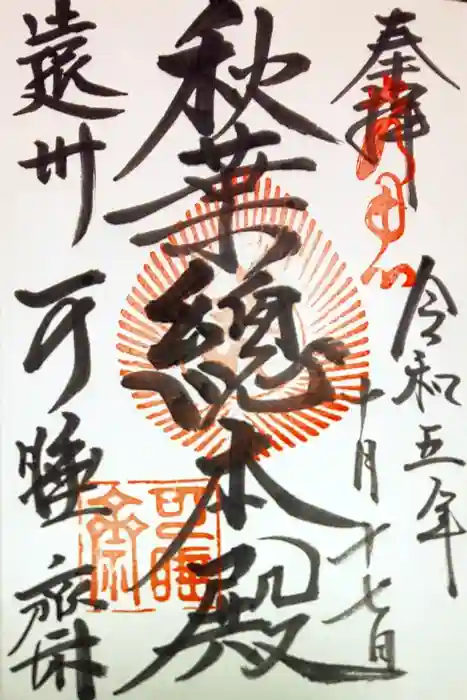 奉拝
令和五年
十月十七日
秋葉總本殿
遠州
可睡齋
可睡齋